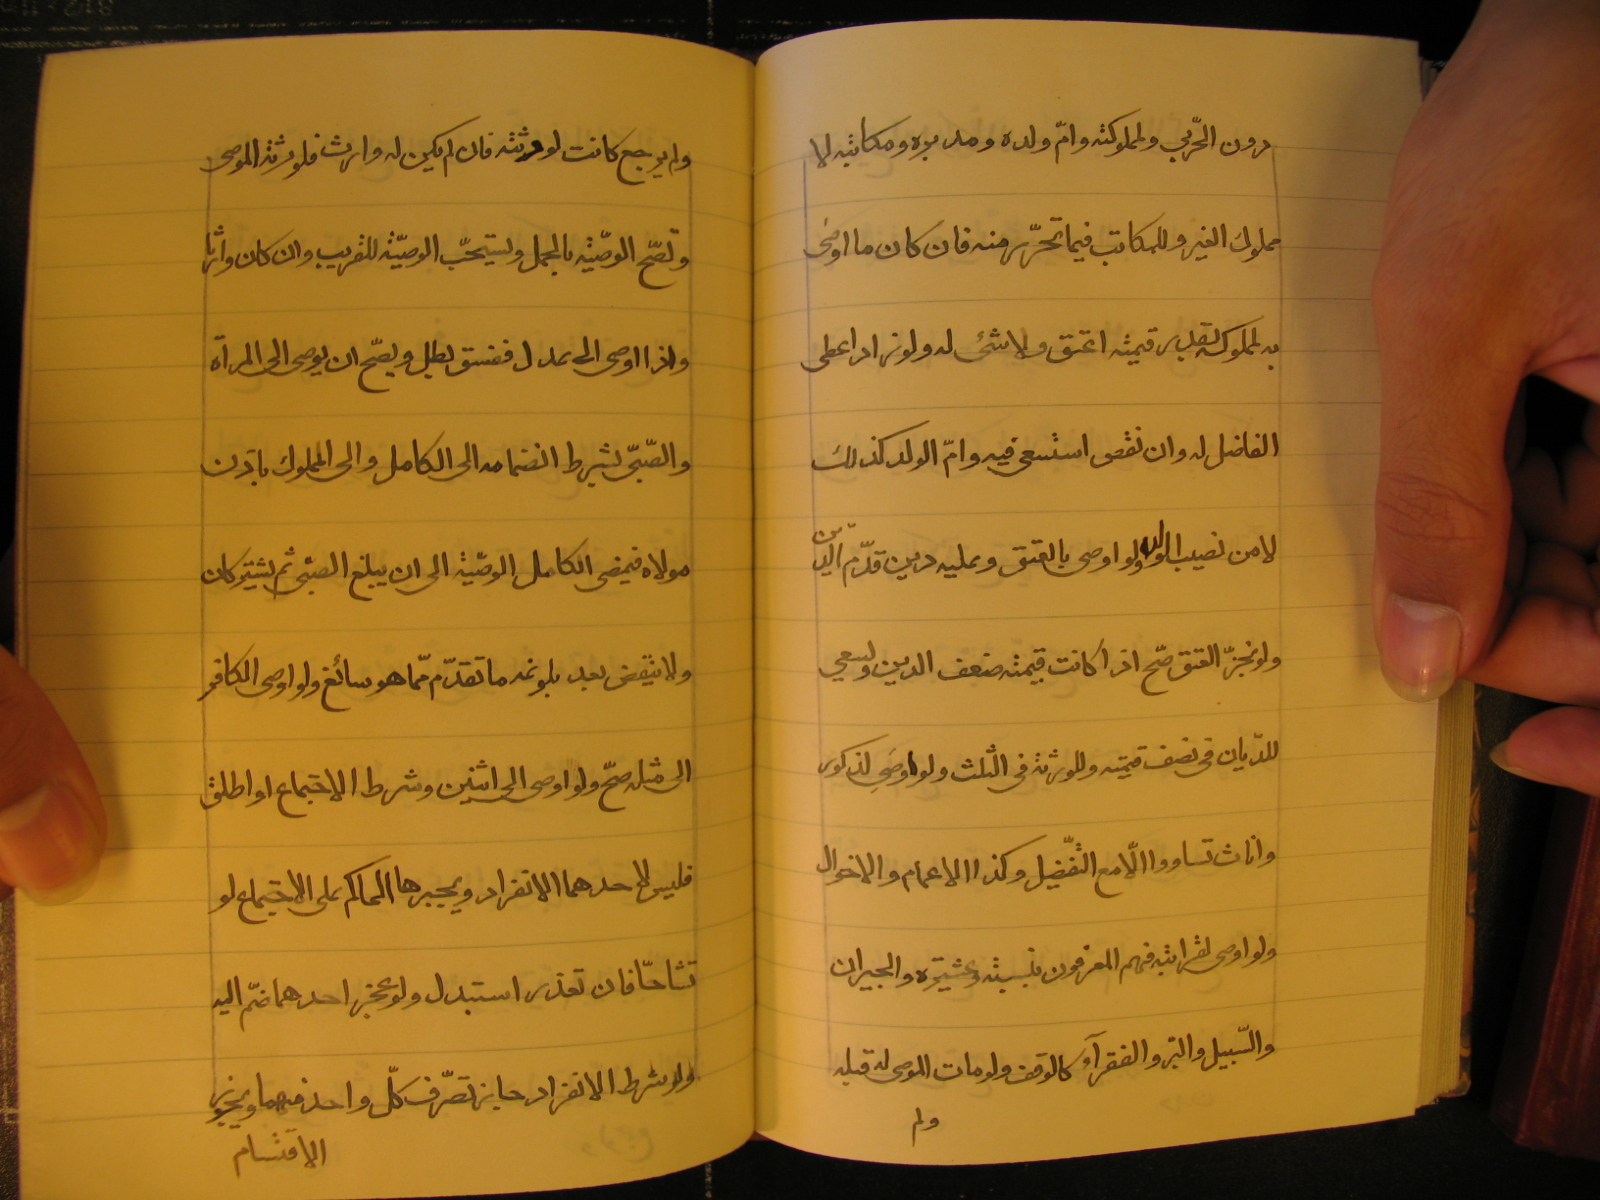 دون الحربي ولمملوكته وامّ ولده ومدبره ومكاتبه لا
مملوك الغير وللمكاتب فيما تحرّر منه فان كان ما اوصى
به لمملوكه بقدر قيمته اعتق ولا شئ له ولو زاد اعطى
الفاضل له وان نقص استسعى فيه وامّ الولد كذلك
لا من نصيب الولد ولو اوصى بالعتق وعليه دين قدّم الدّين
ولو نجّز العتق صّح اذا كانت قيمته ضعف الدين ولسعي
للدّيان فى نصف قيمته وللورثة فى الثلث ولو اوصى لذكور
واناث تساووا الّا مع التّفضيل وكذا الاعمام والاخوال
ولو اوصى لقرابته فهم المعرفون بنسبته وعشيرته والجيران
والسّبيل والبّر والفقرآء كالوقف ولو مات الموصى له قبله
ولم
ولم يرجع كانت لورثته فان لم يكن له وارث فلورثة الموصى
وتصّح الوصّية بالحمل ويستحبّ الوصيّة للقريب وان كان وارثا
واذا اوصى الى عدل ففسق بطل ويصّح ان يوصى الى المرأة
والصّبىّ بشرط انضمامه الى الكامل والى المملوك باذن
مولاه فيمضى الكامل الوصّية الى ان يبلغ الصبّى ثم يشتركان
ولا ينقض بعد بلوغه ما تقدّم مّما هو سائغ ولو اوصى الكافر
الى مثله صّح ولو اوصى الى اثنين وشرط الاجتماع او اطلق
فليس لاحدهما الانفراد ويجبرها الحاكم على الاجتماع لو
تشاحّا فان تعذر استبدل ولو عجز احدهما ضمّ اليه
ولو شرط الانفراد جاز تصّرف كلّ واحد منهما ويجوز
الاقتسام